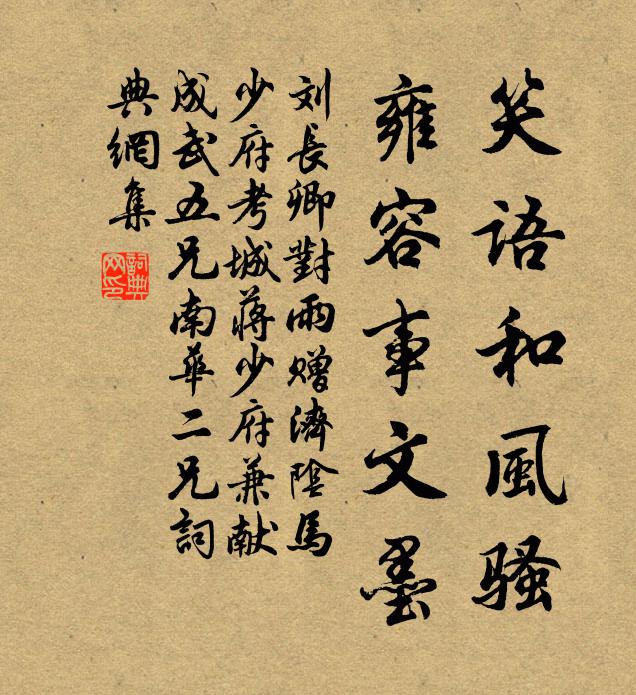 笑語和風騷
雍容事文墨
刘長卿對雨贈濟陰馬
少府考城蔣少府兼献
成武五兄南華二兄詞
典網集
詞典
网印